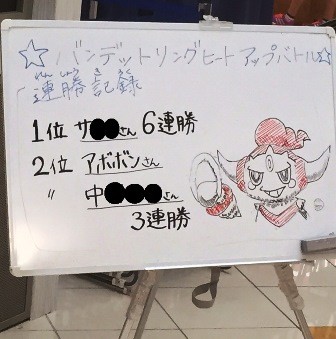 ☆バンデットリングヒートアップバトル☆
れんしょうきろく
連勝記録
1位 サ●●さん 6連勝
2位 アボボンさん
〃 中●●●さん
3連勝